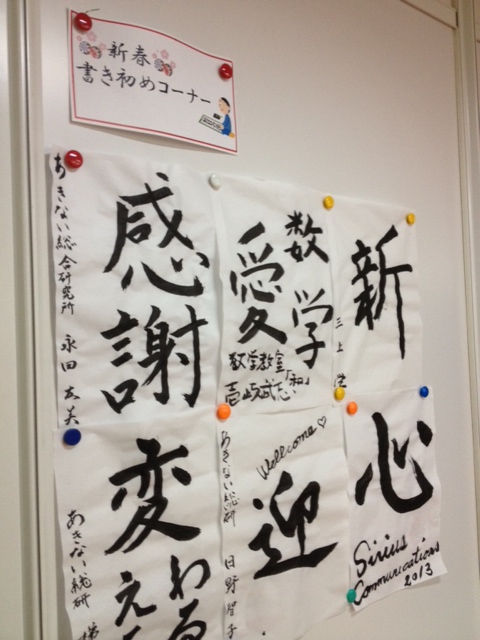 新春
書き初めコーナー
感謝
あきない総合研究所 永田
数学
愛
数学教室「和」
壱岐
新
三上
変
わる
える
あきない総研
Wellcome♡
迎
あきない総研 日野聖子
心
Sirius
Communications
2013